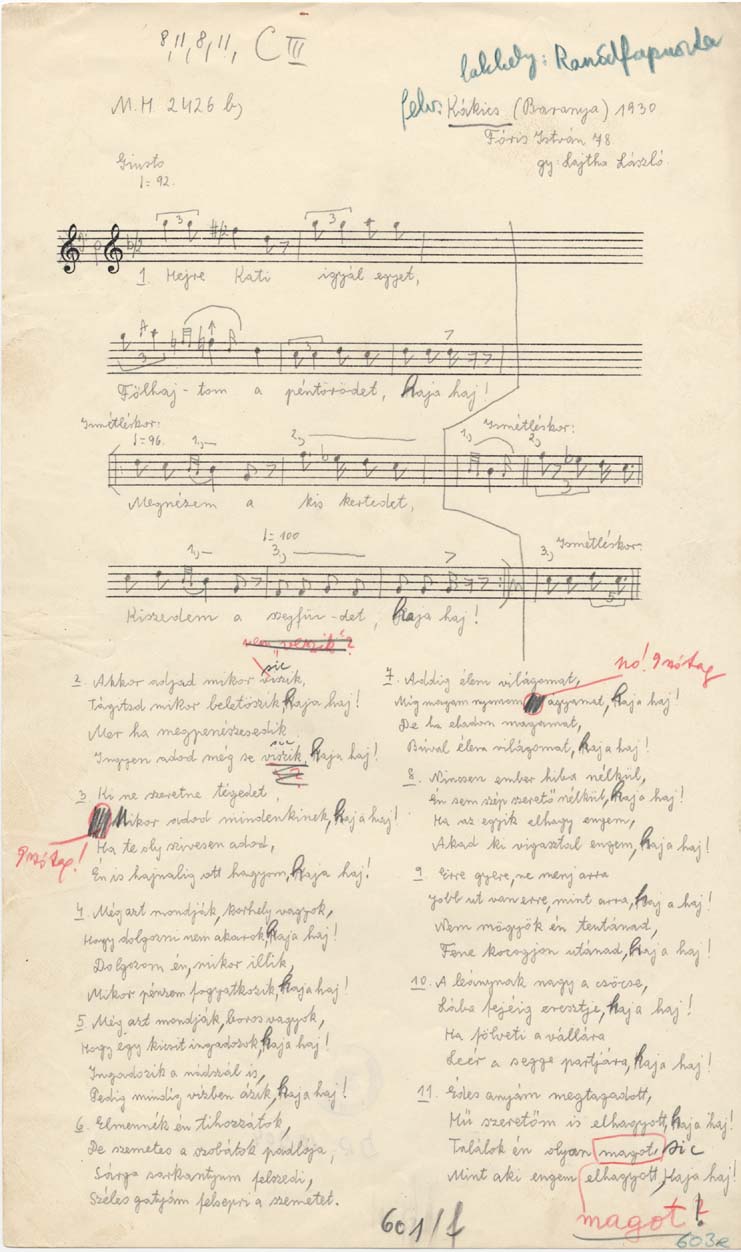 8, 11, 8, 11, C III
lakhely: Ranódfapuszta
M. H 2426 b)
felv: Kákics (Baranya) 1930
Fóris István 78.
gy: Lajtha László.
Giusto
♩= 92.
1. Hejre Kati igyál egyet,
Fölhaj-tom a péntörödet, haja haj!
Ismétléskor:
♩=96. 1, 2, 1, Ismétléskor: 2,
Megnézem a kis kertedet,
♩= 100
1, 3, 3, Ismétléskor:
Kiszedem a szegfür-det, haja haj!
nem „veszik"?
sic
2. Akkor adjad mikor viszik,
Tágítsd mikor beletöszik, haja haj!
Mer ha megpenészesedik
sic
Ingyen adod még se viszik, haja haj!
?
3 Ki ne szeretne tégedet,
Mikor adod mindenkinek, haja haj!
9 szótag!
Ha te oly szivesen adod,
Én is hajnalig ott hagyom, haja haj!
4. Még azt mondják, korhely vagyok,
Hogy dolgozni nem akarok, haja haj!
Dolgozom én, mikor illik,
Mikor pénzem fogyatkozik, haja haj!
5. Még azt mondják, boros vagyok,
Hogy egy kicsit ingadozok, haja haj!
Ingadozik a nádszál is,
Pedig mindíg vizben ázik, haja haj!
6. Elmennék én tihozzátok,
De szemetes a szobátok padlója,
Sárga sarkantyum felszedi,
Széles gatyám felsepri a szemetet.
7. Addig élem világomat,
nó! 9 szótag
Míg magam nyomom ágyamat, haja haj!
De ha eladom magamat,
Búval élem világomat, haja haj!
8. Nincsen ember hiba nélkül,
Én sem szép szerető nélkül, haja haj!
Ha az egyik elhagy engem,
Akad ki vigasztal engem, haja haj!
9. Erre gyere, ne menj arra
Jobb ut van erre, mint arra, haja haj!
Nem mögyök én teutánad,
Fene kocogjon utánad, haja haj!
10. A leánynak nagy a csöcse,
Lába fejéig eresztje, haja haj!
Ha fölveti a vállára
Leér a segge partjára, haja haj!
11. Édes anyám megtagadott,
Hű szeretőm is elhagyott, haja haj!
Találok én olyan magot, sic
Mint aki engem elhagyott, Haja haj!
magot?!
601/f
603e